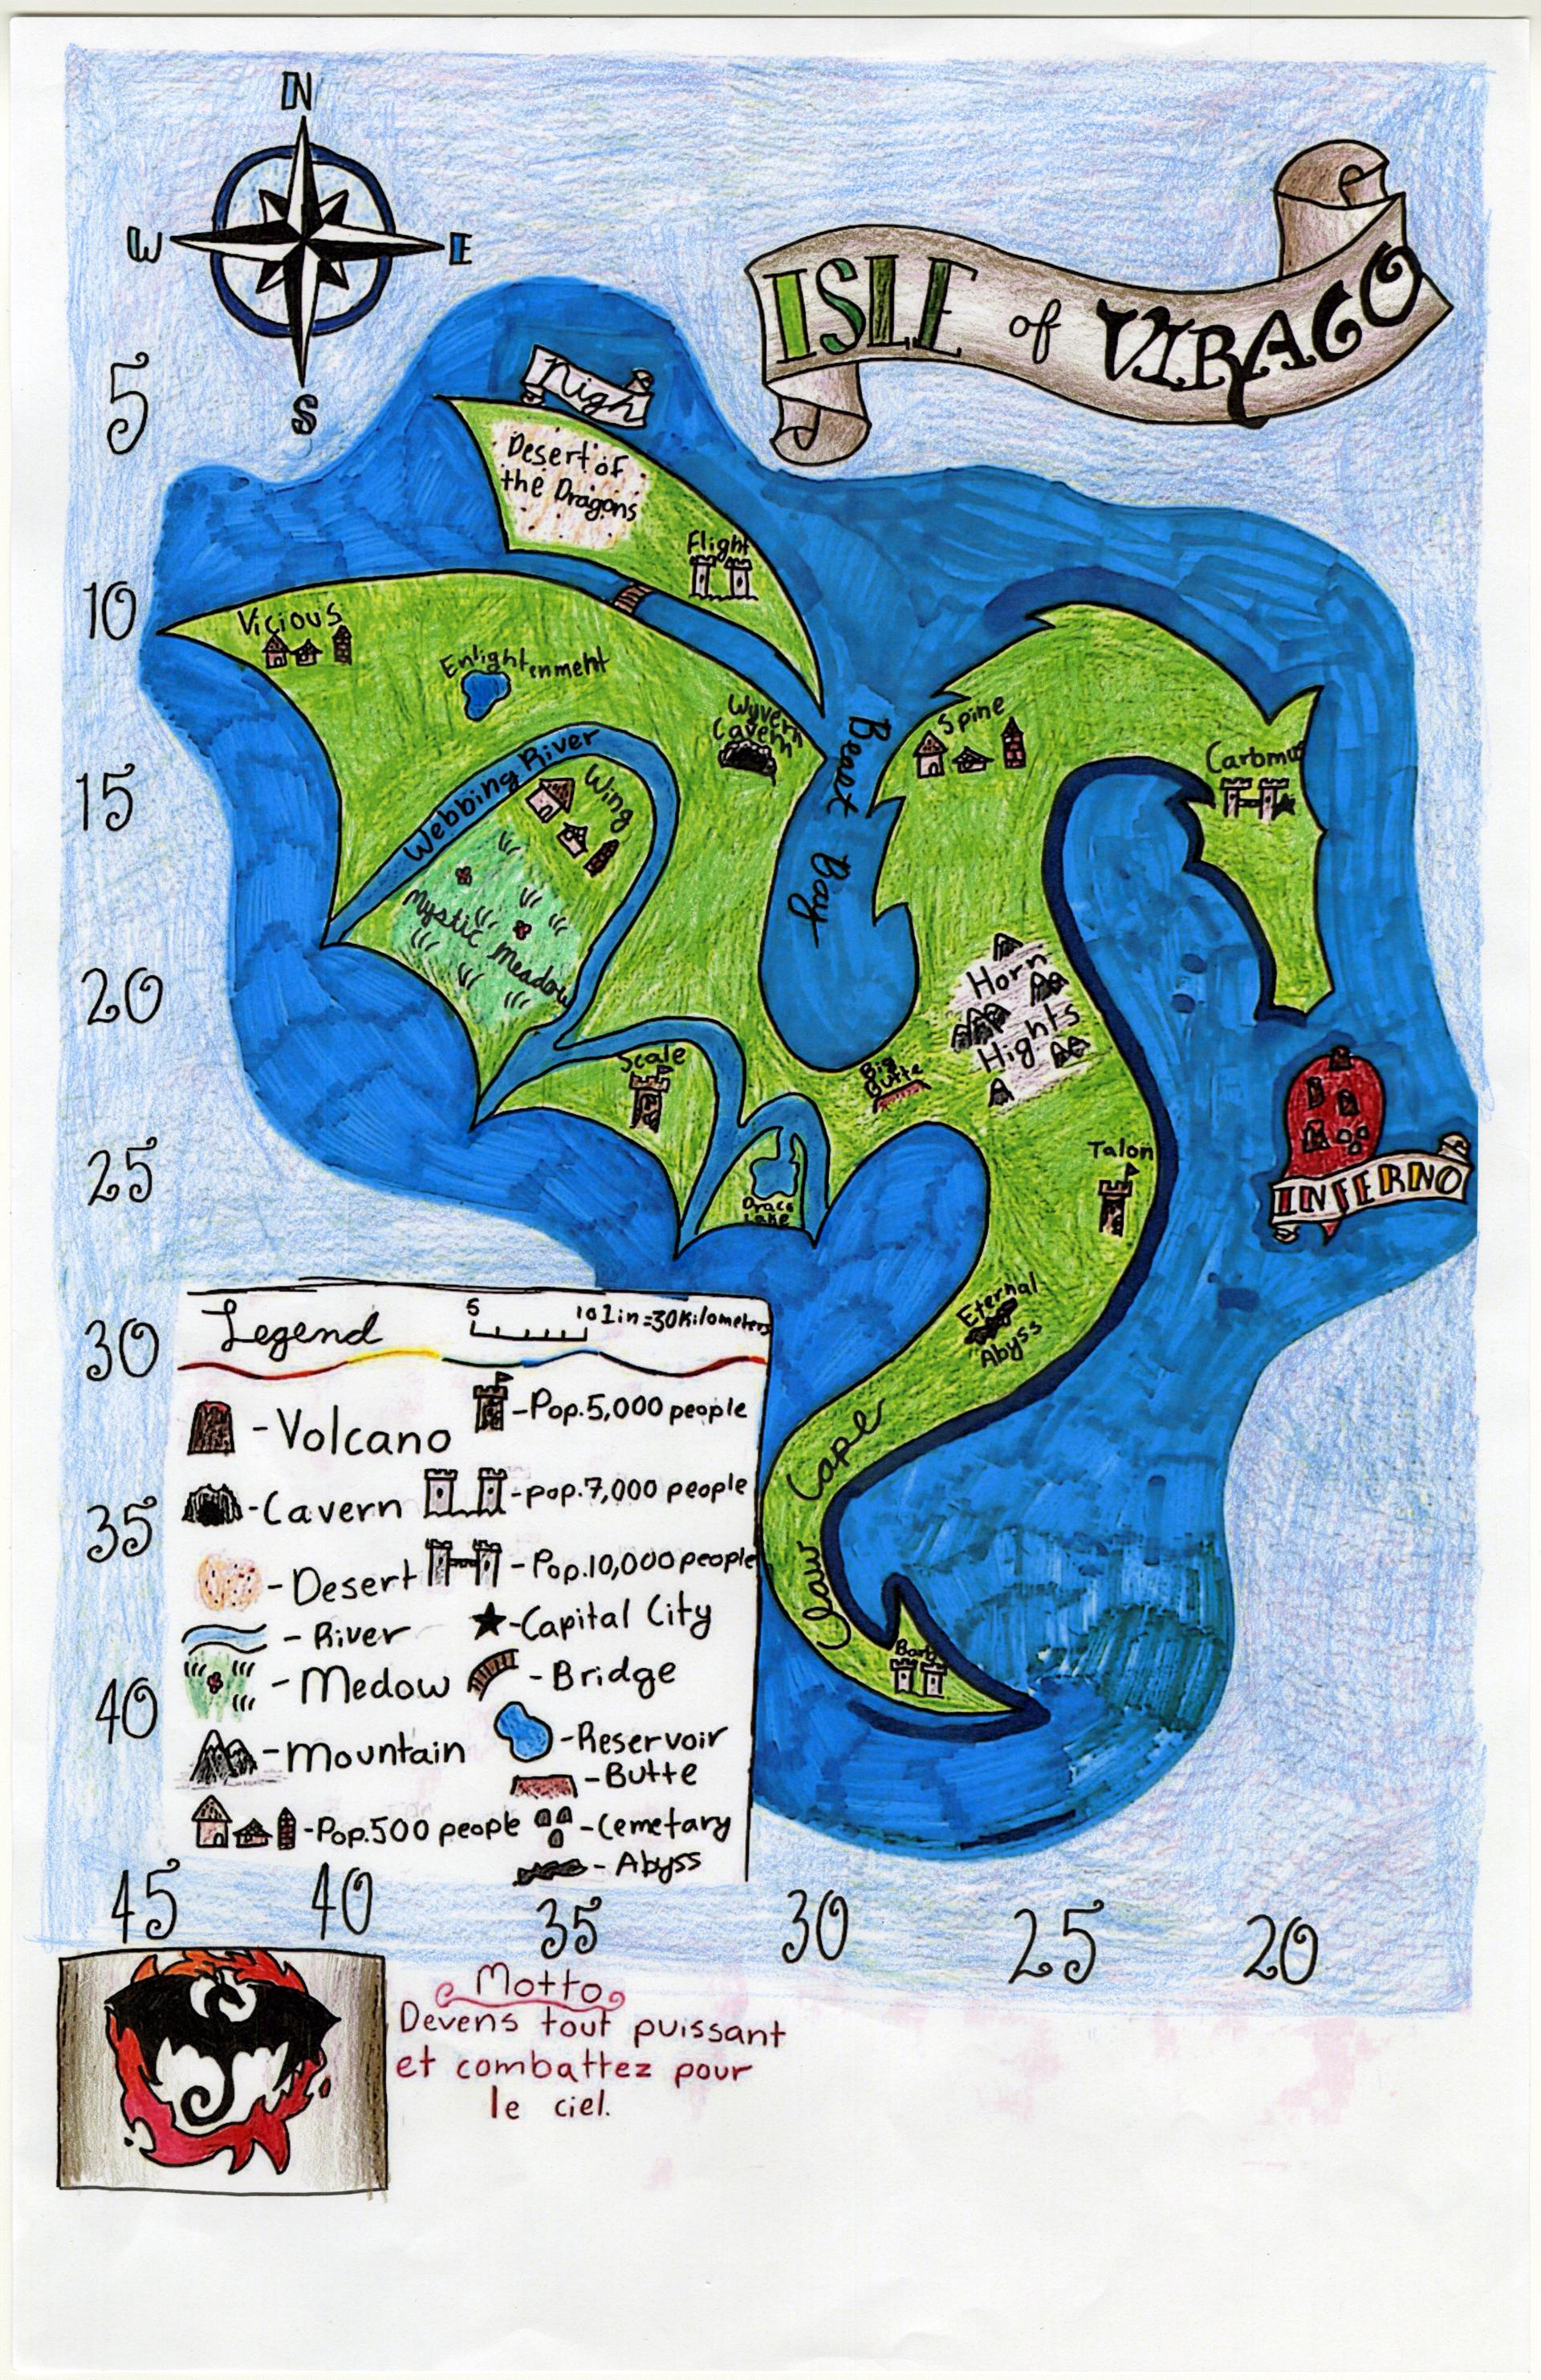 N
W
E
S
ISLE of VIRAGO
5
Nigh
Desert of
the Dragons
Flight
10
Vicious
Enlightenment
Wyvern
Cavern
Beast Bay
Spine
Webbing River
Wing
15
Mystic Meadow
20
Horn
Hights
Scale
Big
Butte
INFERNO
25
Talon
Draco
Lake
Eternal
Abyss
30
Claw Cape
35
40
Legend
5 10 1in=30Kilometers
-Volcano
-Pop.5,000 people
-Cavern
-pop.7,000 people
-Desert
-Pop.10,000 people
-River
-Capital City
-Medow
-Bridge
-Mountain
-Reservoir
-Butte
-Pop.500 people
-Cemetary
-Abyss
45 40 35 30 25 20
Motto
Devens tout puissant
et combattez pour
le ciel.